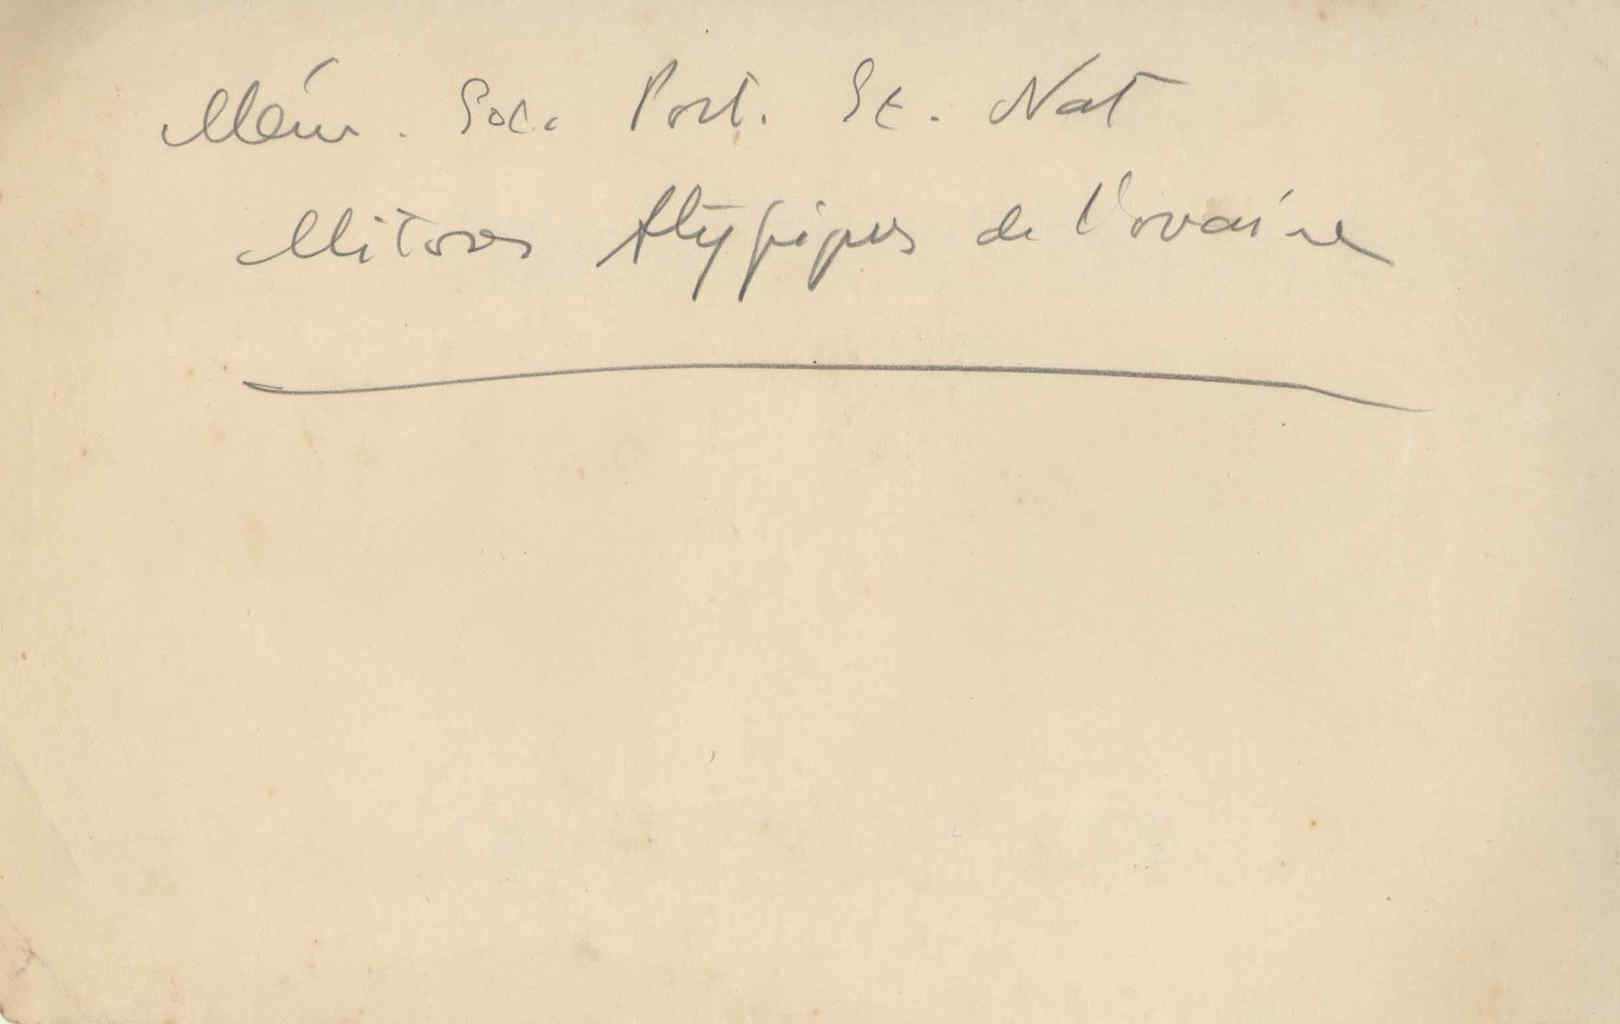 Mém. Soc. Port. Sc. Nat
Mitoses Atypiques de l'ovaire